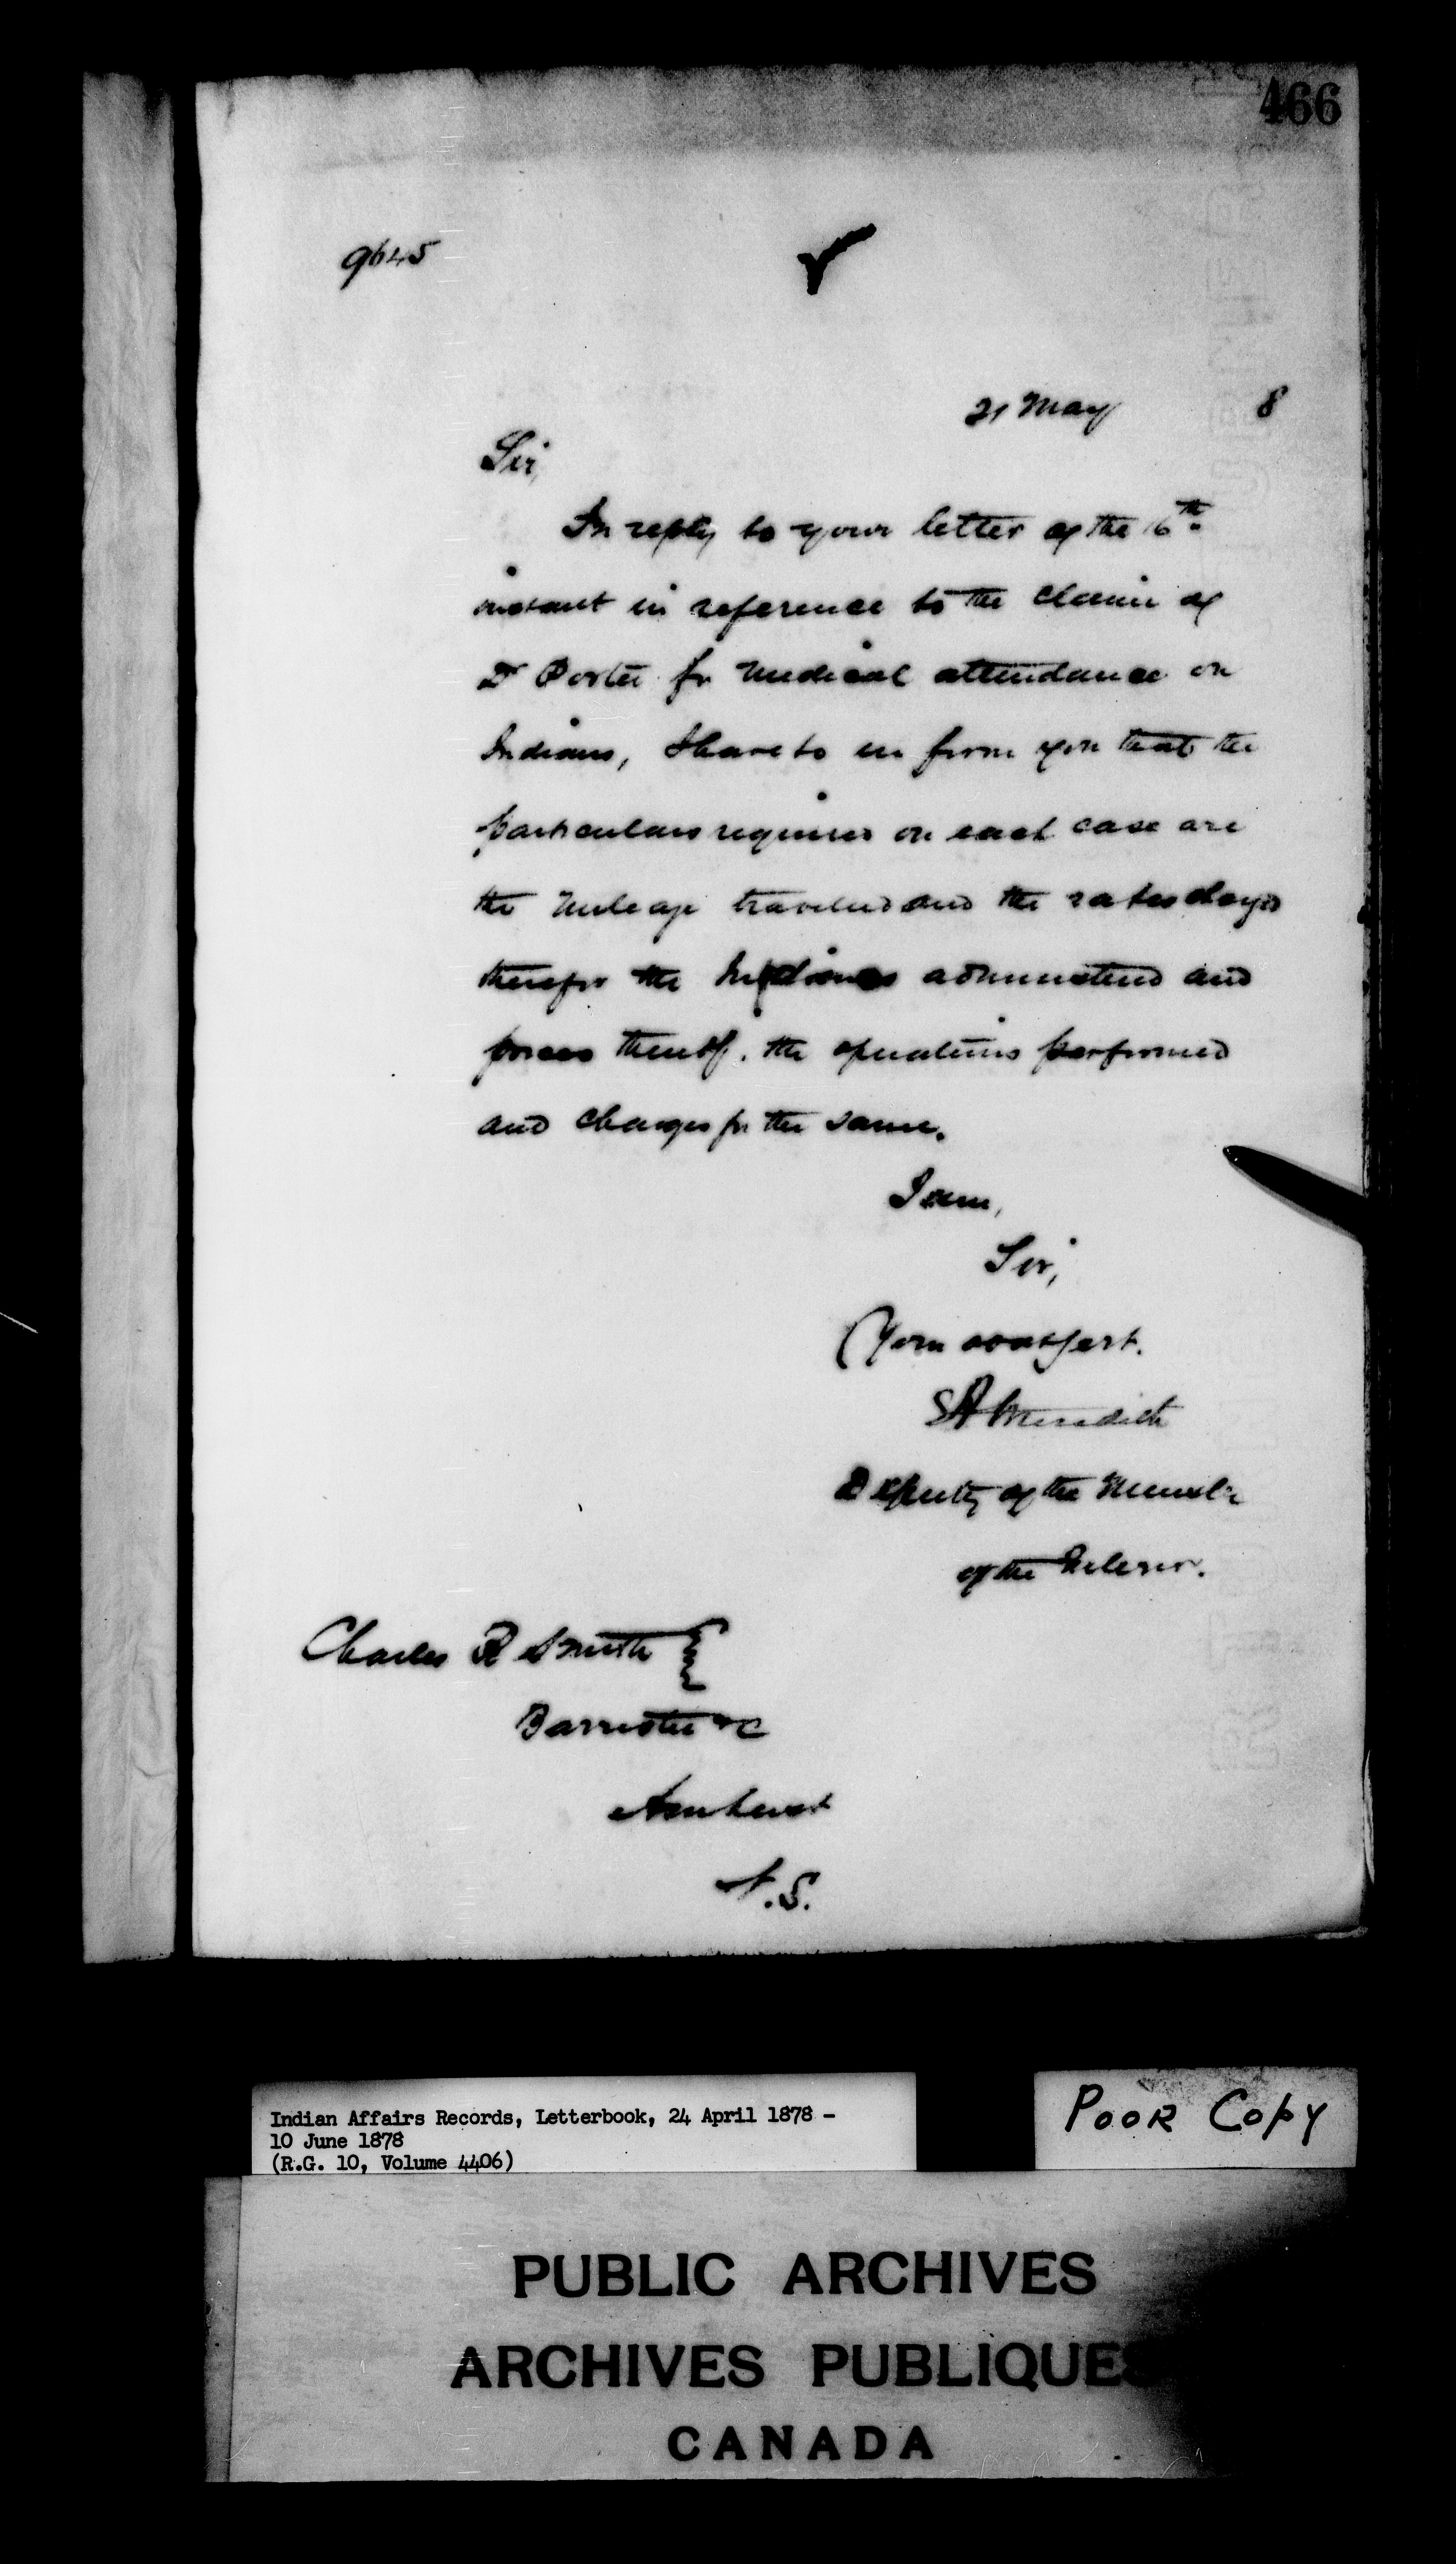 466
9645
21 May 8
Sir,
In reply to your letter of the 16th
instant in reference to the claim of
Dr Porter for medical attendance on
Indians, I have to inform you that the
particulars required in each case are
the mileage travelled and the rates
therefor the administered and
prices thereof, the operations performed
and charges for the same.
I am,
Sir,
Your
SA Meredith
Deputy of the Minister
of the Interior.
Charles R Smith
Barrister &c
Amherst
N.S.
Indian Affairs Records, Letterbook, 24 April 1878 -
10 June 1878
(R.G. 10, Volume 4406)
POOR COPY
PUBLIC ARCHIVES
ARCHIVES PUBLIQUES
CANADA